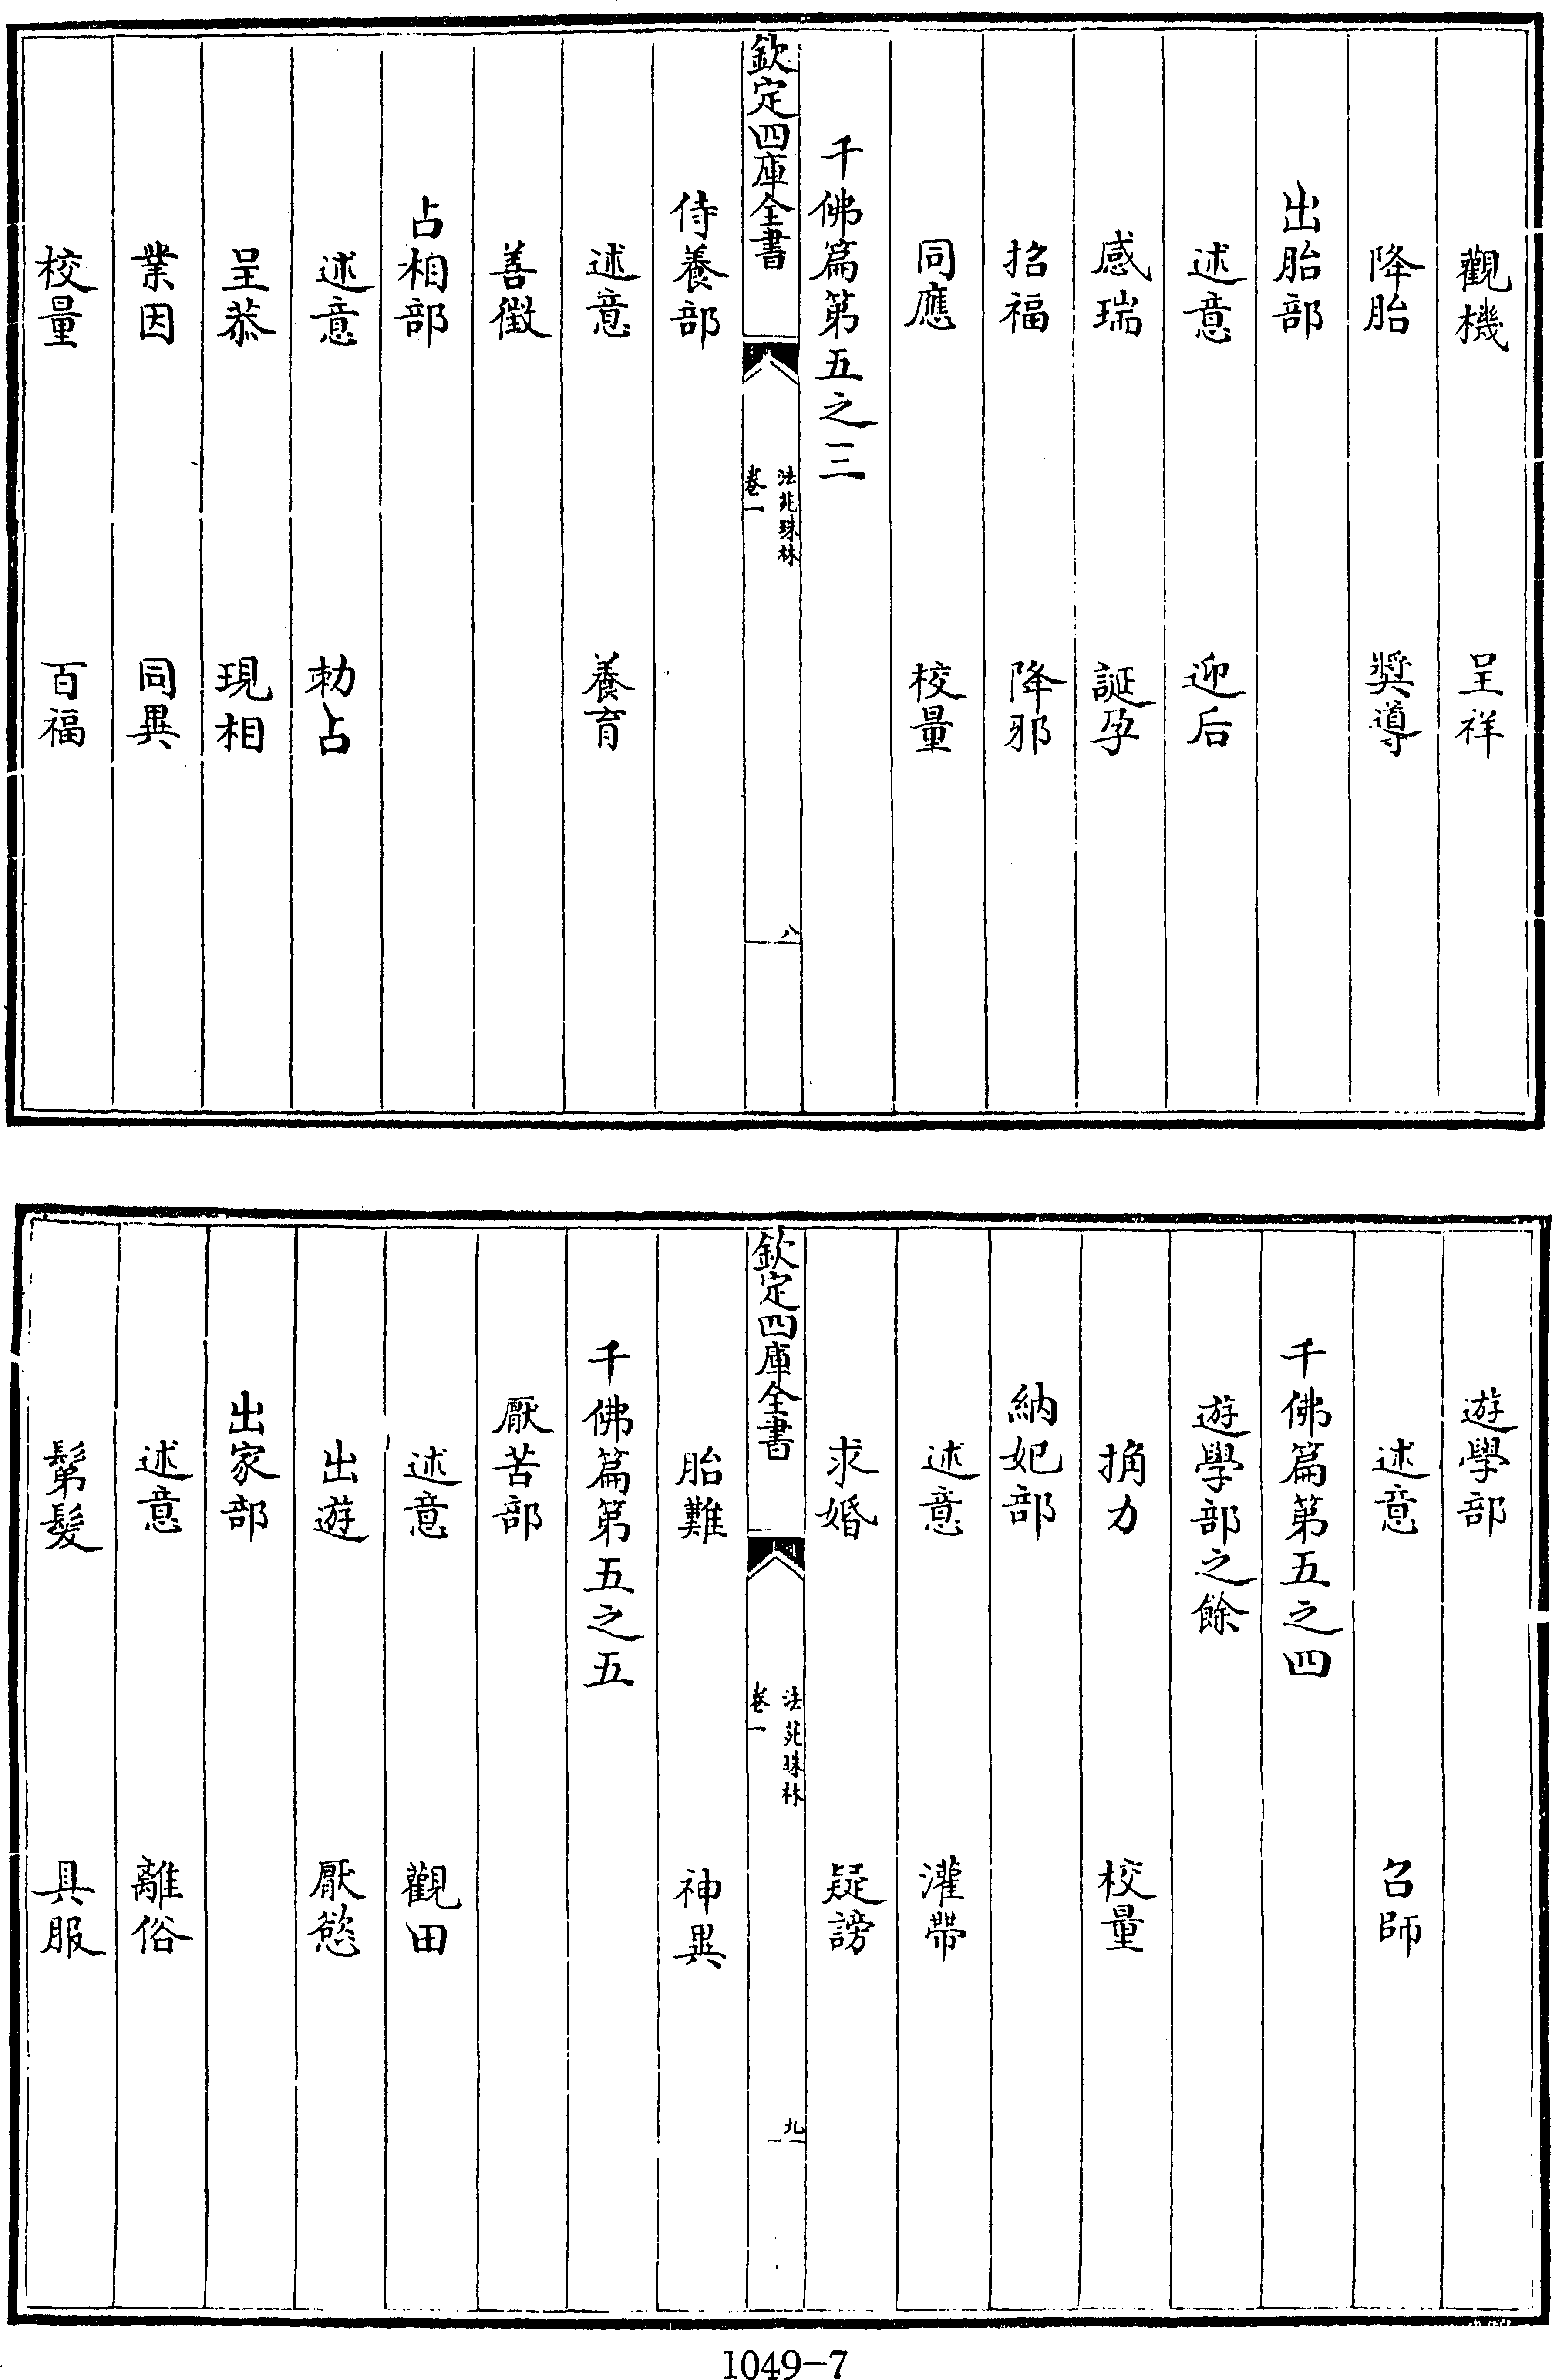 觀機　呈祥
降胎　奬導
出胎部
述意　迎后
感瑞　誕孕
招福　降邪
同應　校量
千佛篇第五之三
欽定四庫全書
法苑珠林
卷一
八
侍養部
述意　養育
善徵
占相部
述意　勅占
呈恭　現相
業因　同異
校量　百福
遊學部
述意　召師
千佛篇第五之四
遊學部之餘
捔力　校量
納妃部
述意　灌帶
求婚　疑謗
欽定四庫全書
法苑珠林
卷一
九
胎難　神異
千佛篇第五之五
厭苦部
述意　觀田
出遊　厭慾
出家部
述意　離俗
髴髮　具服
1049-7